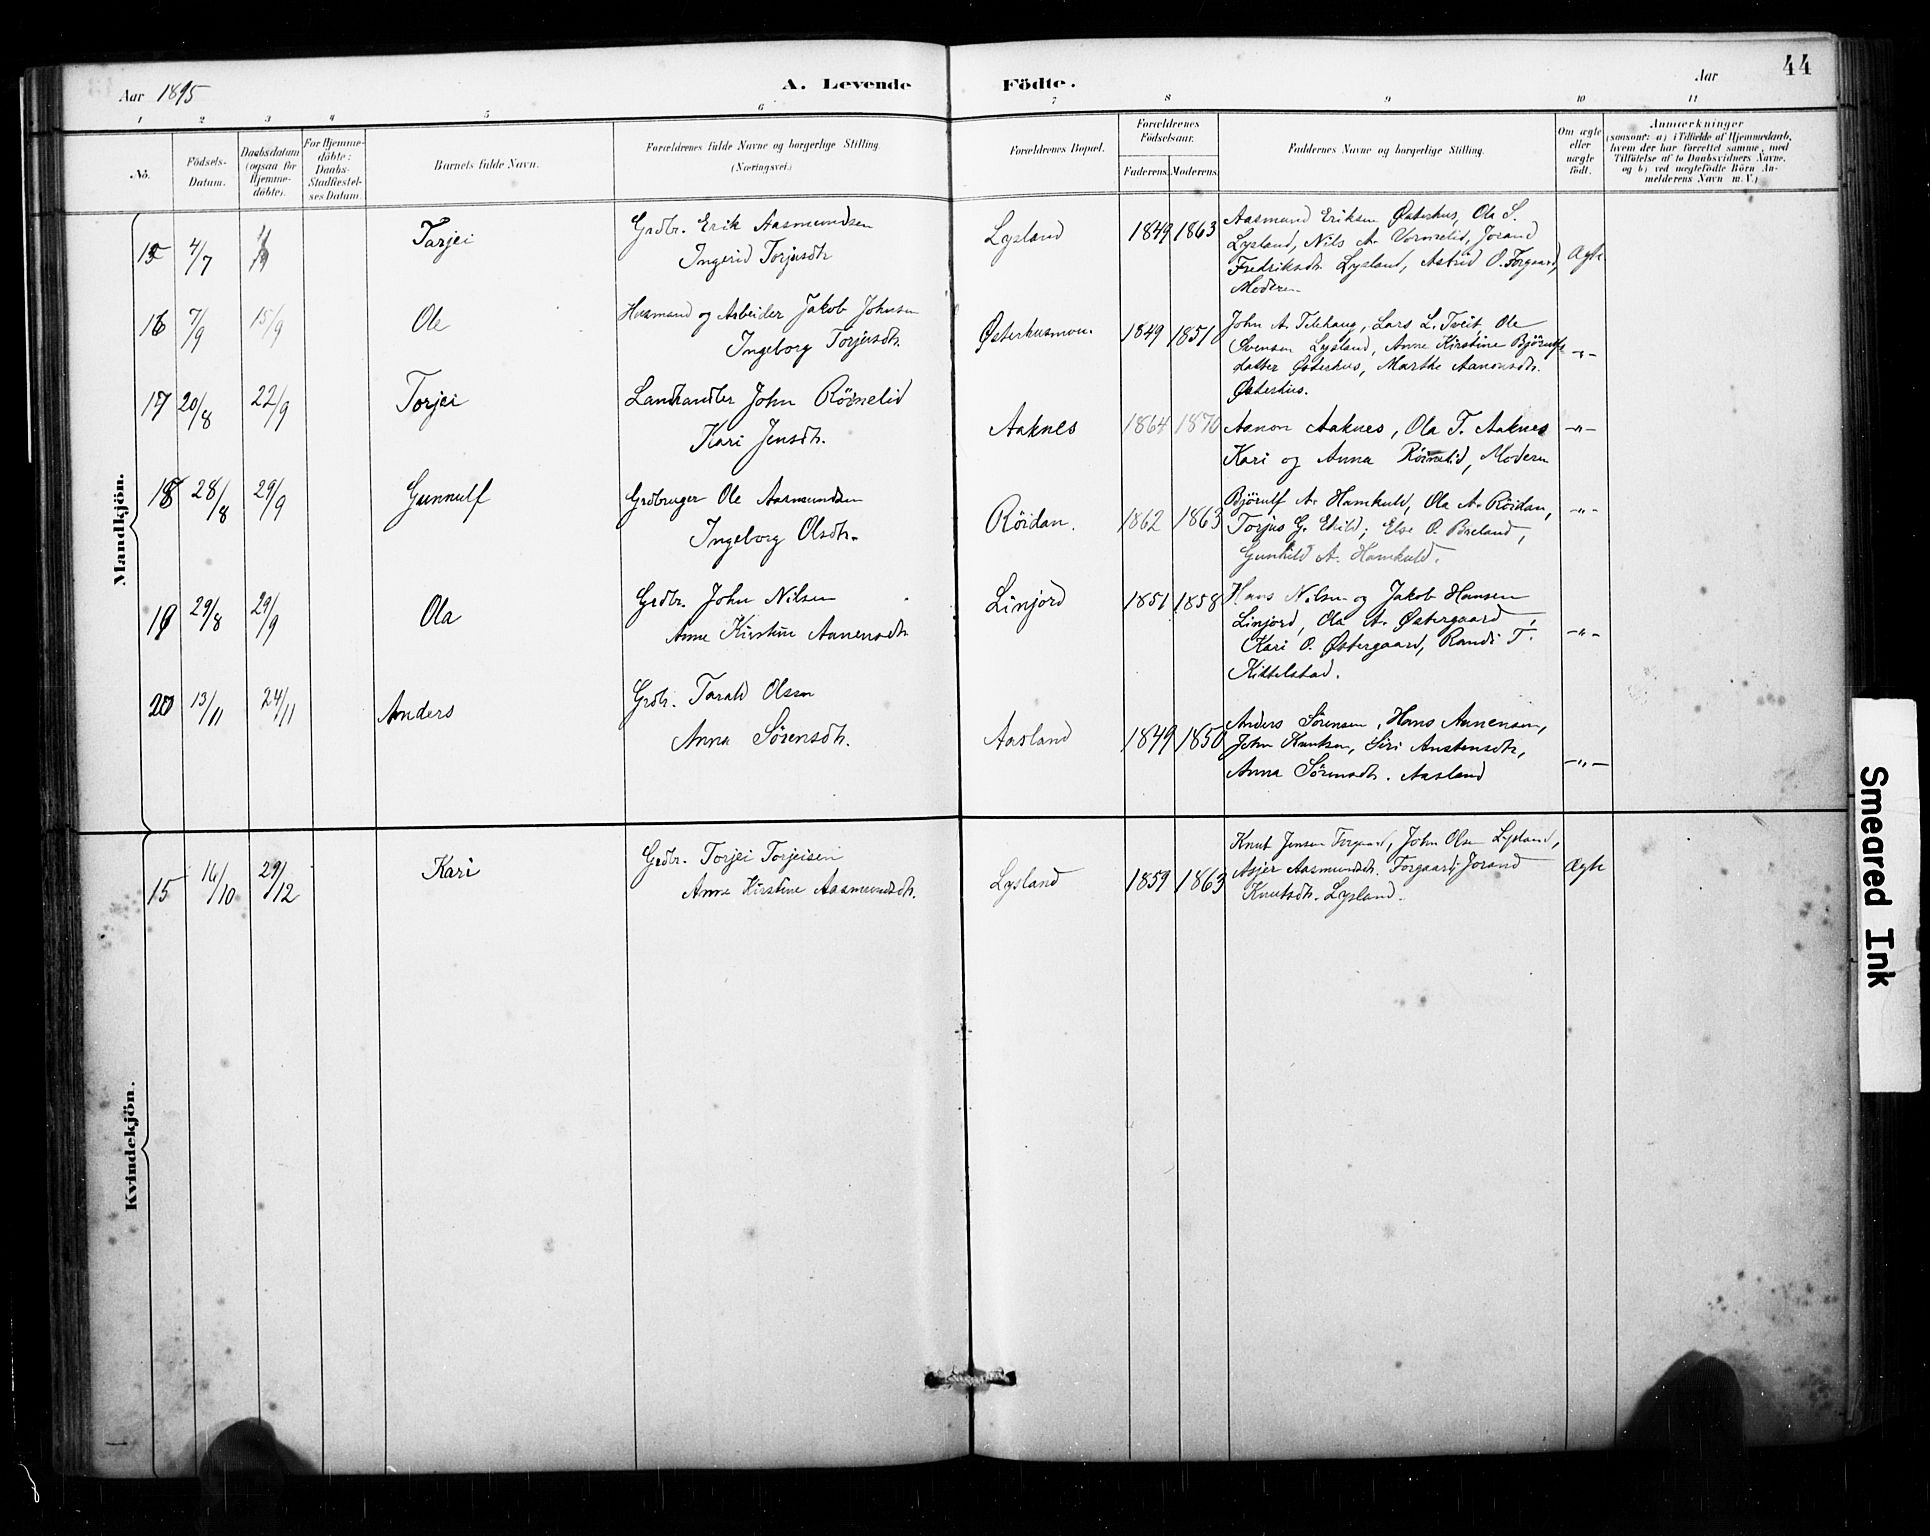 44
Aar 1895
A. Levende Födte.
Aar
1 2 3 4 5 6 7 8 9 10 11
No.
Födsels-Datum.
Daabsdatum (ogsaa for Hjemme-döbte).
For Hjemme-döbte: Daabs-Stadfæstel-ses Datum.
Barnets fulde Navn.
Forældrenes fulde Navne og borgerlige Stilling.
(Næringsvei.)
Forældrenes Bopæl.
Forældrenes Födselsaar.
Faderens. Moderens.
Faddernes Navne og borgerlige Stilling.
Om ægte eller uægte födt.
Anmærkninger
(saasom: a) i Tilfælde af Hjemmedaab, hvem der har forrettet samme, med Tilföielse af to Daabsvidners Navne, og b) ved uægtefödte Börn An-melderens Navn m.V.)
Mandkjön.
15 4/7 Tarjei
Grdbr. Erik Aasmundsen
Ingerid Torjusdtr
Lysland 1849 1863
Aasmund Eriksen Østerhus, Ola S.
Lysland, Nils A. Vormelid, Jorand
Fredriksdtr Lysland, Astrid O. Forgaard,
Moderen
Ægte
16 7/9 15/9 Ole
Husmand og Arbeider Jakob Johnsen
Ingeborg Torjusdtr.
Østerhusmon. 1849 1851
John A. Telehaug, Lars L. Tveit, Ole
Svensen Lysland, Anne Kirstine Bjørulfs
datter Østerhus, Marthe Aanonsdtr.
Østerhus.
-"-
17 20/8 22/9 Torjei
Landhandler John Rörnelid
Kari Jensdtr.
Aaknes 1864 1870
Aanon Aaknes, Ola T. Aaknes
Kari og Anna Rörnelid, Moderen
-"-
18 28/8 29/9 Gunnulf
Grdbruger Ole Aasmundsen
Ingeborg Olsdtr.
Röidan. 1862 1863
Bjørulf A. Hamkuld, Ola A. Röidan,
Torjus G. Ekild; Else O. Breland,
Gunhild A. Hamkuld.
-"-
19 29/8 29/9 Ola
Grdbr. John Nilsen
Anne Kirstine Aanensdtr
Linjord 1851 1858
Hans Nilsen og Jakob Hansen
Linjord, Ola A. Østergaard,
Kari O. Østergaard, Randi T.
Kittelstad.
-"-
20 13/11 24/11 Anders
Grdbr. Tarald Olsen
Anna Sörensdtr.
Aasland 1849 1850
Anders Sörensen, Hans Aanensen,
John Knutsen, Siri Anstensdtr,
Anna Sörensdtr. Aasland
-"-
Kvindekjön.
15 16/10 29/12 Kari
Grdbr. Torjei Torjeisen
Anne Kirstine Aasmundsdtr.
Lysland 1859 1863
Knut Jensen Forgaard, John Olsen Lysland,
Asjer Aasmundsdtr. Forgaard, Jorand
Knutsdtr. Lysland.
Ægte
Smeared Ink